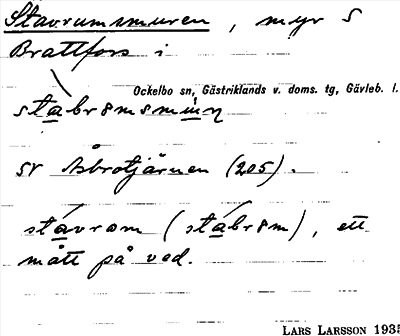 Stavrumsmuren, myr S
Brattfors i
Ockelbo sn, Gästriklands v. doms. tg, Gävleb. l.
stabrømsmùɳ
sv Åbrotjärnen (205).
stávrom (stábrøm), ett
mått på ved.
LARS LARSSON 1935